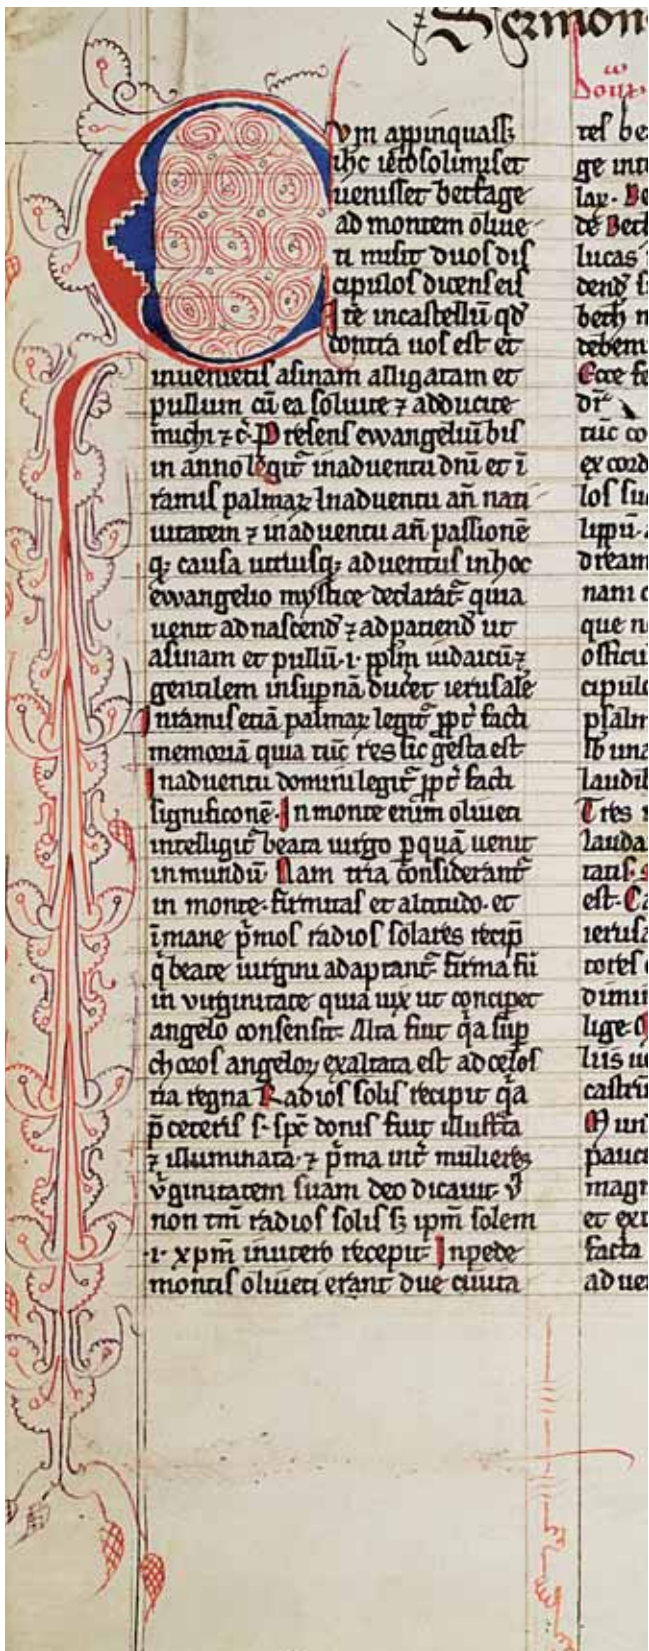 Sermon
Cum appinquass;
ihc ierosolimis et
uenisset betfage
ad montem oliue
ti misit duos dis
cipulos dicens eis
Ite in castellū qd
contra uos est et
inuenietis asinam alligatam et
pullum cū ea soluite ⁊ adducite
michi ⁊ c̄· Presens ewangeliū bis
in anno legit᷑ in aduentu dnī et ī
ramis palmaꝝ In aduentu an̄ nati
uitatem ⁊ in aduentu an̄ passionē
qꝫ causa utriusqꝫ aduentus in hoc
ewangelio mystice declarat᷑ quia
uenit ad nascend̄ ⁊ ad patiend̄ ut
asinam et pullū ·i· pplm iudaicū ⁊
gentilem in supnā ducet ierusalē
In ramis etiā palmaꝝ legit᷑ ppt᷑ facti
memoriā quia tūc res sic gesta est
In aduentu domini legit᷑ ppt᷑ facti
significonē· In monte enim oliueti
intelligit᷑ beata uirgo p quā uenit
in mundū Nam tria considerant᷑
in monte· firmitas et altitudo· et
ī mane p̄mos radios solares recip̄
q̄ beate uirgini adaptant᷑ firma fū
in uirginitate quia uix ut conciper
angelo consensit· Alta fuit q̄a sup̄
choros angeloꝝ exaltata est ad celes
tia regna Radios solis recipit q̄a
p̄ ceteris s· spc̄ donis fuit illust̄ta
⁊ illuminata· ⁊ p̄ma int᷑ mulieres
v̄ginitatem suam deo dicauit· v̄
non tm̄ radios solis sꝫ ipm̄ solem
·i· xpm̄ in utero recepit· In pede
montis oliueti erant due ciuita
tes be
ge int
lucas
dend̄ s
bech n
debem
Ecce fe
dr̄
tūc co
ex cord
los su
lippū
dream
nam c
que n
officu
cipulo
psalm
sb una
laudib
Tres
lauda
est· Ca
ierusa
cores
dimit
lige·
lius ue
castrū
pauca
magn
et ext
facta
ad uen